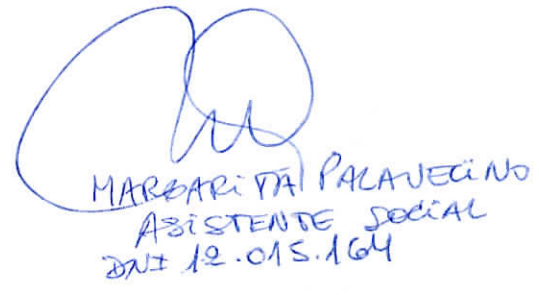 MARGARiTA PALAVECiNO
ASiSTENTE SOCiAL
DNI 12.015.164